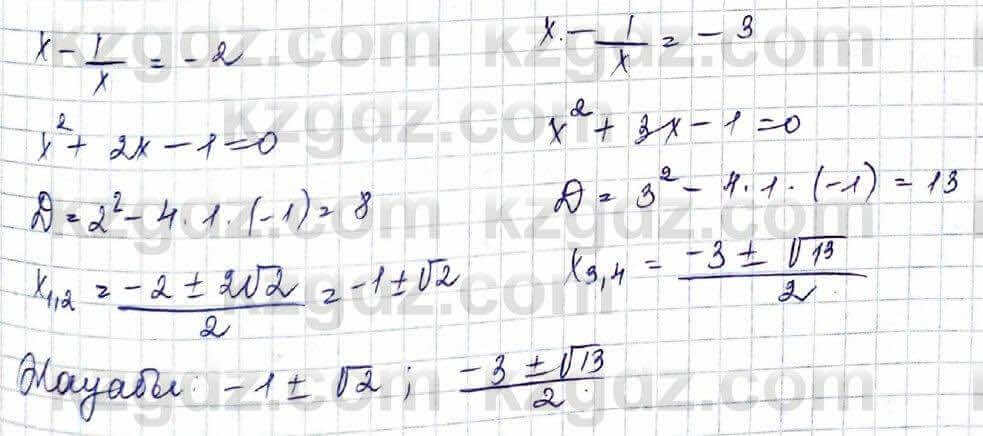 x - 1/x = -2
x² + 2x - 1 = 0
D = 2² - 4·1·(-1) = 8
x₁,₂ = (-2 ± 2√2)/2 = -1 ± √2
x. - 1/x = -3
x² + 3x - 1 = 0
D = 3² - 4·1·(-1) = 13
x₃,₄ = (-3 ± √13)/2
Жауабы: -1 ± √2 ; (-3 ± √13)/2
kzgdz.com